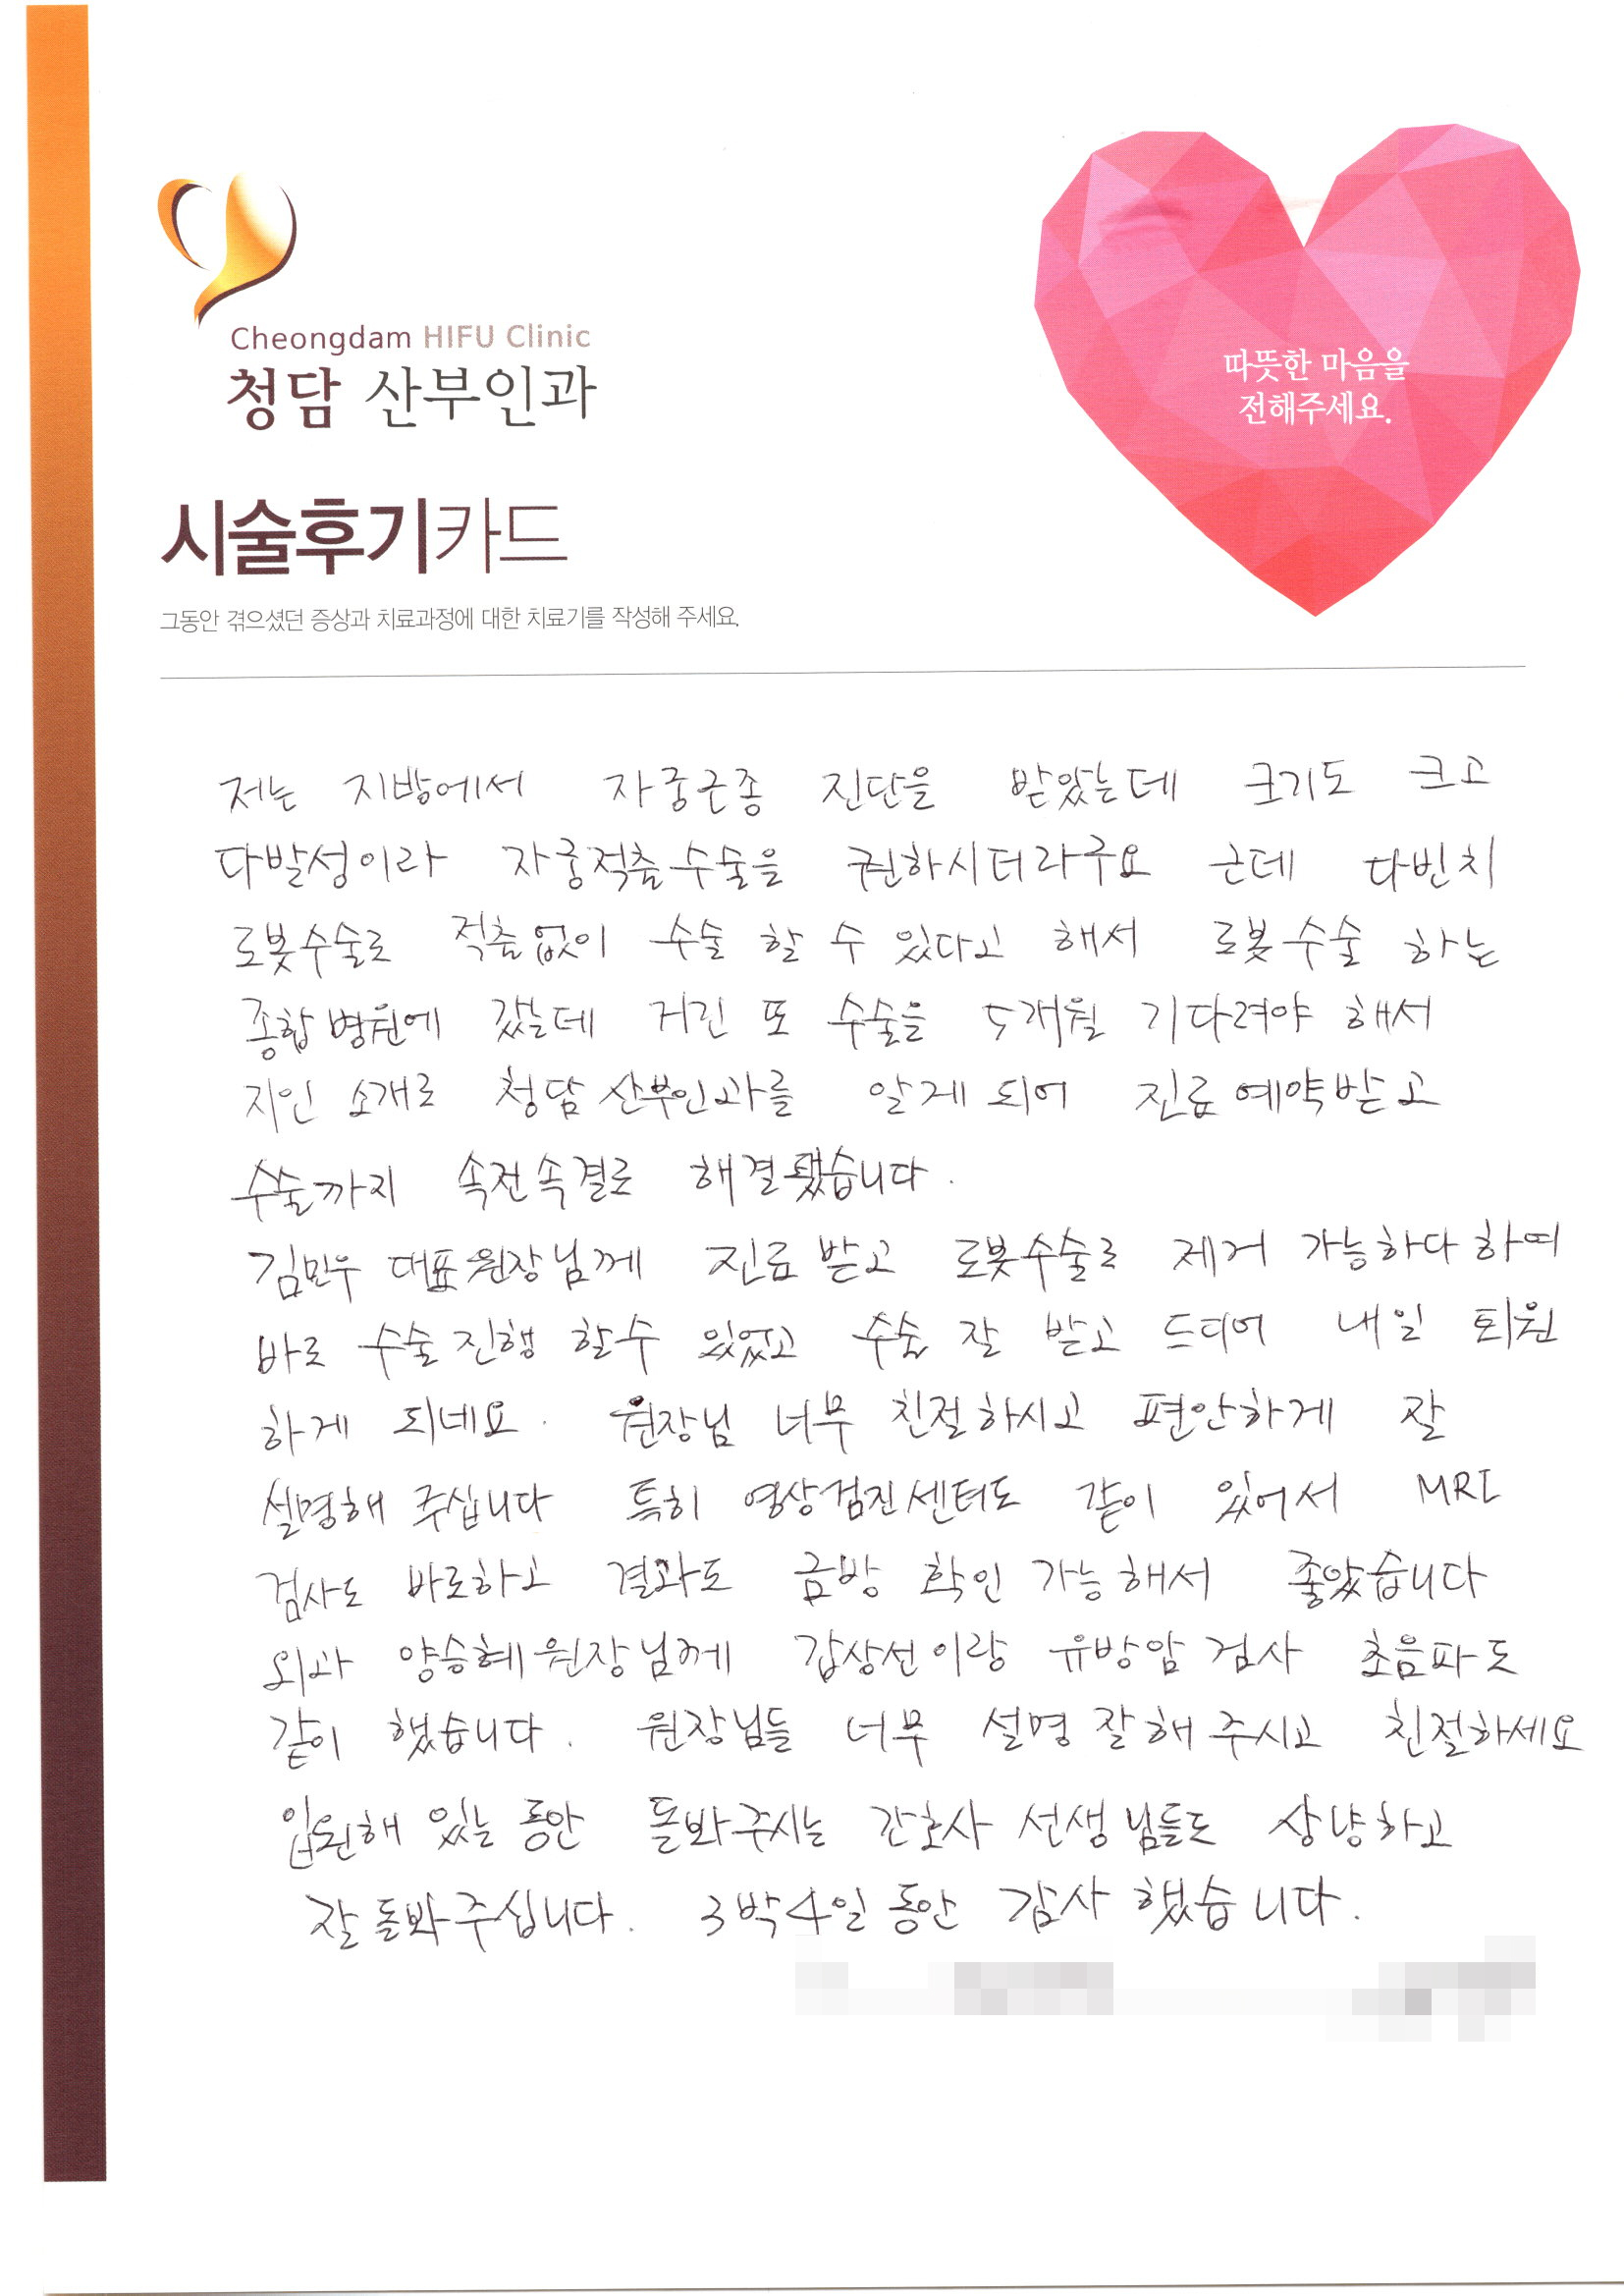 Cheongdam HIFU Clinic
청담 산부인과
따뜻한 마음을
전해주세요.
시술후기카드
그동안 겪으셨던 증상과 치료과정에 대한 치료기를 작성해 주세요.
저는 지방에서 자궁근종 진단을 받았는데 크기도 크고
다발성이라 자궁적출수술을 권하시더라구요 근데 다빈치
로봇수술로 적출없이 수술 할 수 있다고 해서 로봇수술 하는
종합병원에 갔는데 거긴 또 수술을 5개월 기다려야 해서
지인 소개로 청담산부인과를 알게 되어 진료예약받고
수술까지 속전속결로 해결됐습니다.
김민우 대표원장님께 진료 받고 로봇수술로 제거 가능하다 하여
바로 수술진행 할수 있었고 수술 잘 받고 드디어 내일 퇴원
하게 되네요. 원장님 너무 친절하시고 편안하게 잘
설명해 주십니다 특히 영상검진센터도 같이 있어서 MRI
검사도 바로하고 결과도 금방 확인 가능해서 좋았습니다
외과 양승혜원장님께 갑상선이랑 유방암 검사 초음파도
같이 했습니다. 원장님들 너무 설명 잘해 주시고 친절하세요
입원해 있는 동안 돌봐주시는 간호사 선생님들도 상냥하고
잘 돌봐주십니다. 3박4일 동안 감사 했습니다.